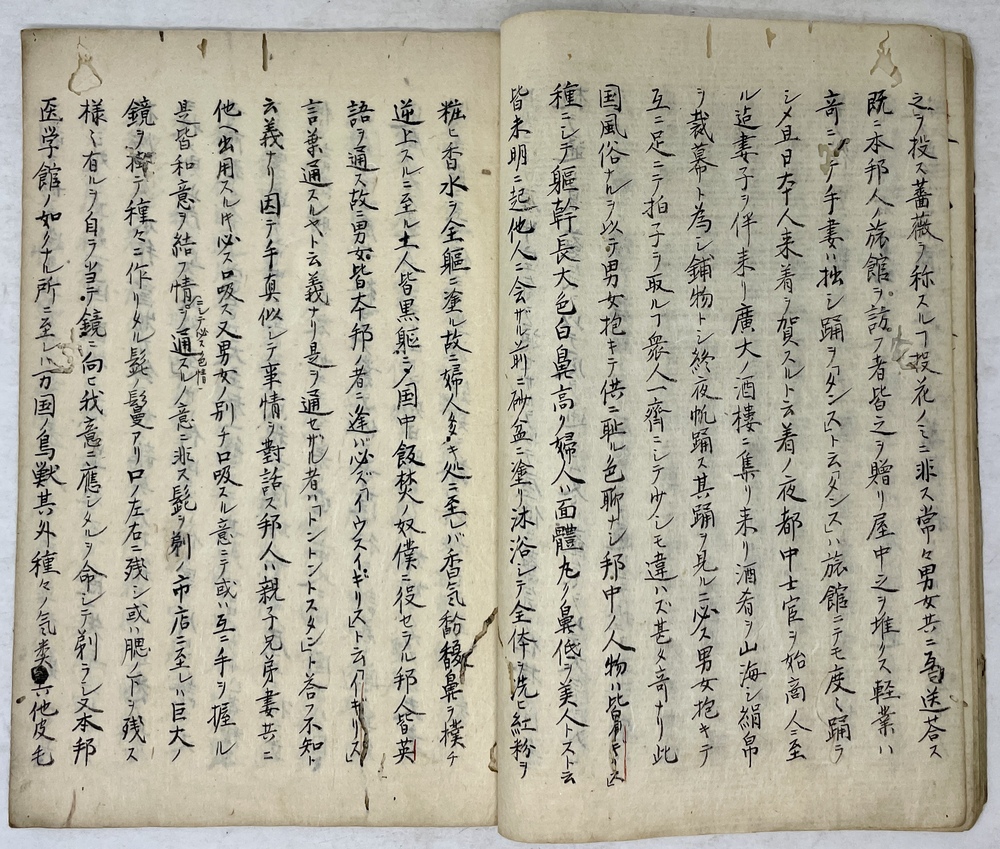 之ヲ投ス薔薇ヲ称スルヿ投花ノミニ非ス常々男女共ニ吾送答ス
既ニ本邦人ノ旅館ヲ訪フ者皆之ヲ贈リ屋中之ヲ堆クス軽業ハ
奇ニシテ手妻ハ拙シ踊ヲ「タンス」ト云「タンス」ハ旅館ニテモ度々踊ラ
シメ且日本人来着ヲ賀スルト云着ノ夜都中士官ヲ始商人ニ至
ル迠妻子ヲ伴来リ廣大ノ酒樓ニ集リ来リ酒肴ヲ山海シ絹帛
ヲ裁幕ト為シ鋪物トシ終夜帆踊ス其踊ヲ見ルニ必ス男女抱キテ
互ニ足ニテ拍子ヲ取ルヿ衆人一齊ニシテ少シモ違ハズ甚タ奇ナリ此
国風俗ナルヲ以テ男女抱キテ供ニ恥ル色聊ナシ邦中ノ人物ハ皆
種ニシテ軀幹長大色白鼻高ク婦人ハ面體丸ク鼻低ヲ美人トスト云
皆未明ニ起他人ニ会ザル前ニ砂盆ニ塗リ沐浴シテ全体ヲ洗ヒ紅粉ヲ
粧ヒ香水ヲ全軀ニ塗ル故ニ婦人多キ処ニ至レバ香気馚馥鼻ヲ撲チ
逆上スルニ至ル土人皆黒軀ニメ国中飯焚ノ奴僕ニ役セラル邦人皆英
語ヲ通ス故ニ男女皆本邦ノ者ニ逢ハ必ズ「イウスイギリス」ト云「イギリス」
言葉通スルヤト云義ナリ是ヲ通セザル者ハ「トントントスタン」ト答フ不知ト
云義ナリ因テ手真似シテ事情ヲ對話ス邦人ハ親子兄弟妻共ニ
他ヘ出用スルキ必ス口吸ス又男女ノ別チ口吸スル意ニテ或ハ互ニ手ヲ握ル
是皆和意ヲ結フ情ニシテ必ス色情ヲ通スルノ意ニ非ス髭ヲ剃ノ市店ニ至レハ巨大ノ
鏡ヲ掛テ種々ニ作リタル髭ノ鬘アリ口ノ左右ニ残シ或ハ腮ノ下ヲ残ス
様々有ルヲ自ラ当テ鏡ニ向ヒ我意ニ應シタルヲ命シテ剃ラシ又本邦
医学館ノ如クナル所ニ至レハ万国ノ鳥戦其外種々ノ気类六他皮毛